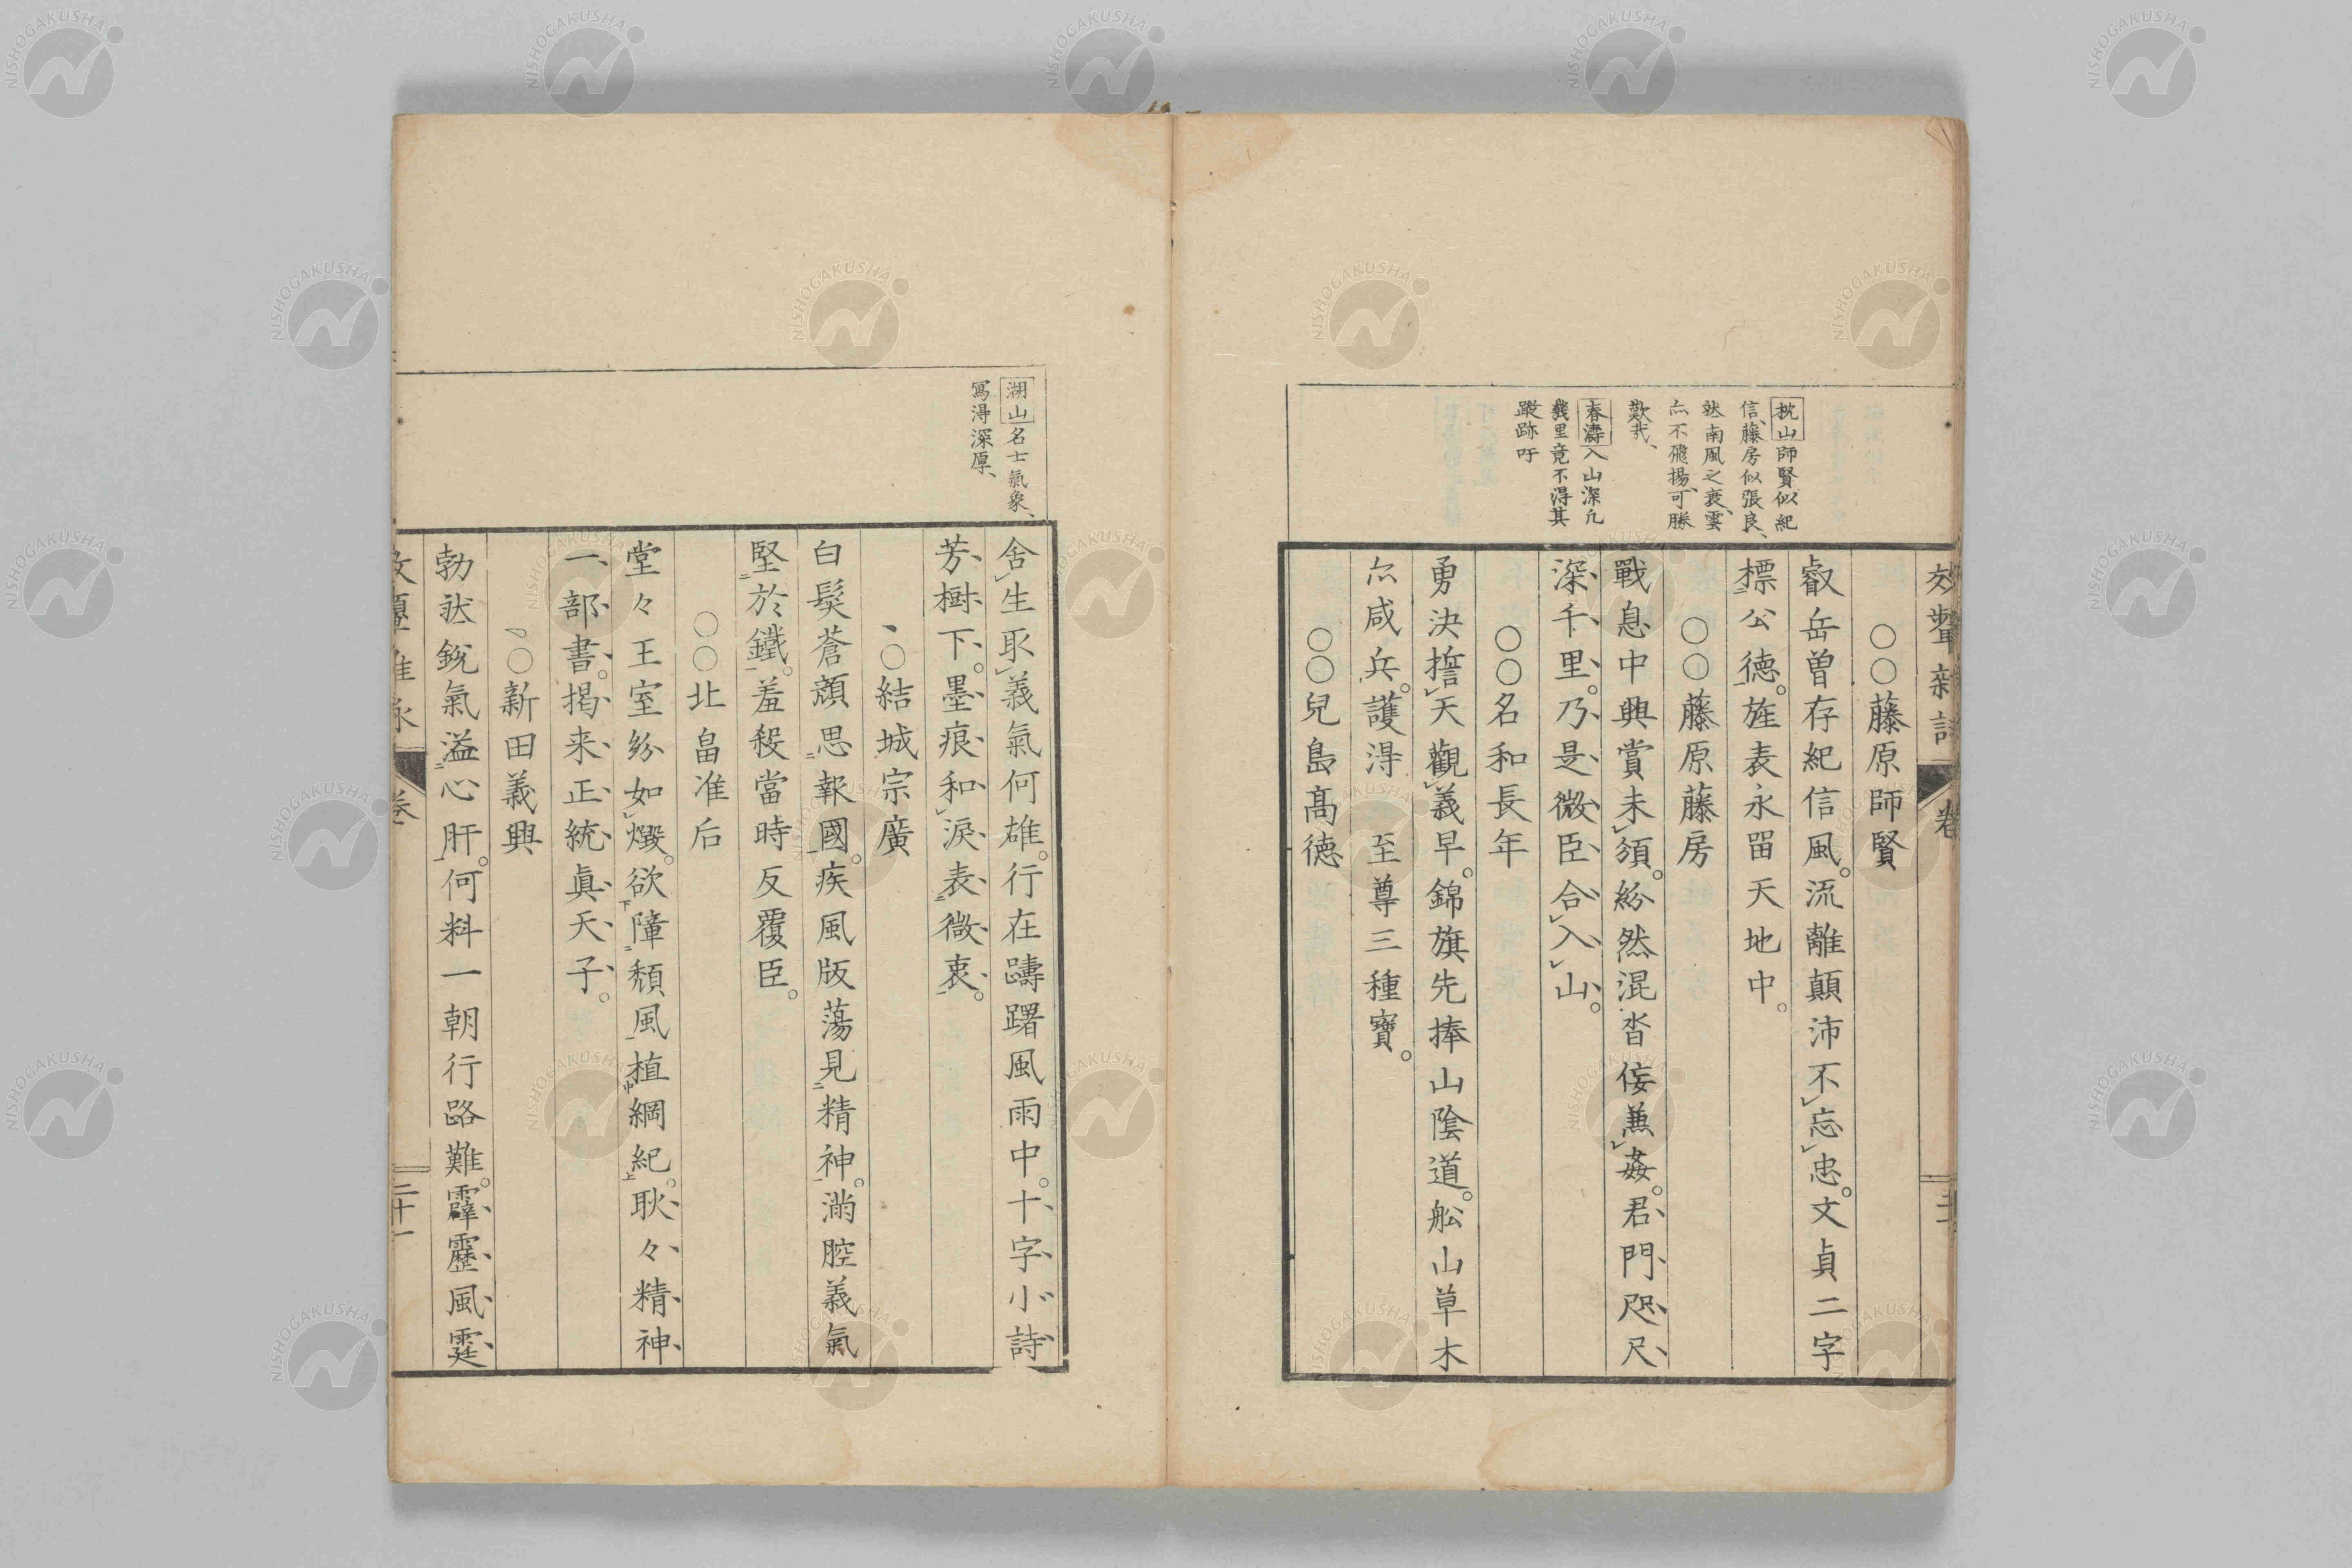 藤原師賢
叡岳曽存紀信風。流離顛沛不忘忠。文貞二字
標公徳。旌表永留天地中。
○○藤原藤房
戰息中興賞未須。紛然混沓佞兼姦。君門咫尺
深千里。乃是微臣合入山。
○○名和長年
勇決擔天觀義早。錦旗先捧山陰道。舩山草木
亦咸兵。護得 至尊三種寶。
○○兒島髙徳
枕山師賢似紀
信、藤房似張良、
然南風之衰、雲
亦不飛揚、可勝
歎哉、
春濤入山深凡
幾里竟不得其
蹤跡吁
舍生取義氣何雄。行在躊躇風雨中。十字小詩
芳樹下。墨痕和淚表微衷。
○結城宗廣
白髮蒼顔思報國。疾風版蕩見精神。滿腔義氣
堅於鐵。羞殺當時反覆臣。
○○北畠准后
堂々王室紛如燬。欲障頽風植綱紀。耿々精神
一部書。掲来正統眞天子。
○新田義興
勃然銳氣溢心肝。何料一朝行路難。霹靂風霆
湖山名士氣象、
寫得深厚、
卷
二十一
NISHOGAKUSHA